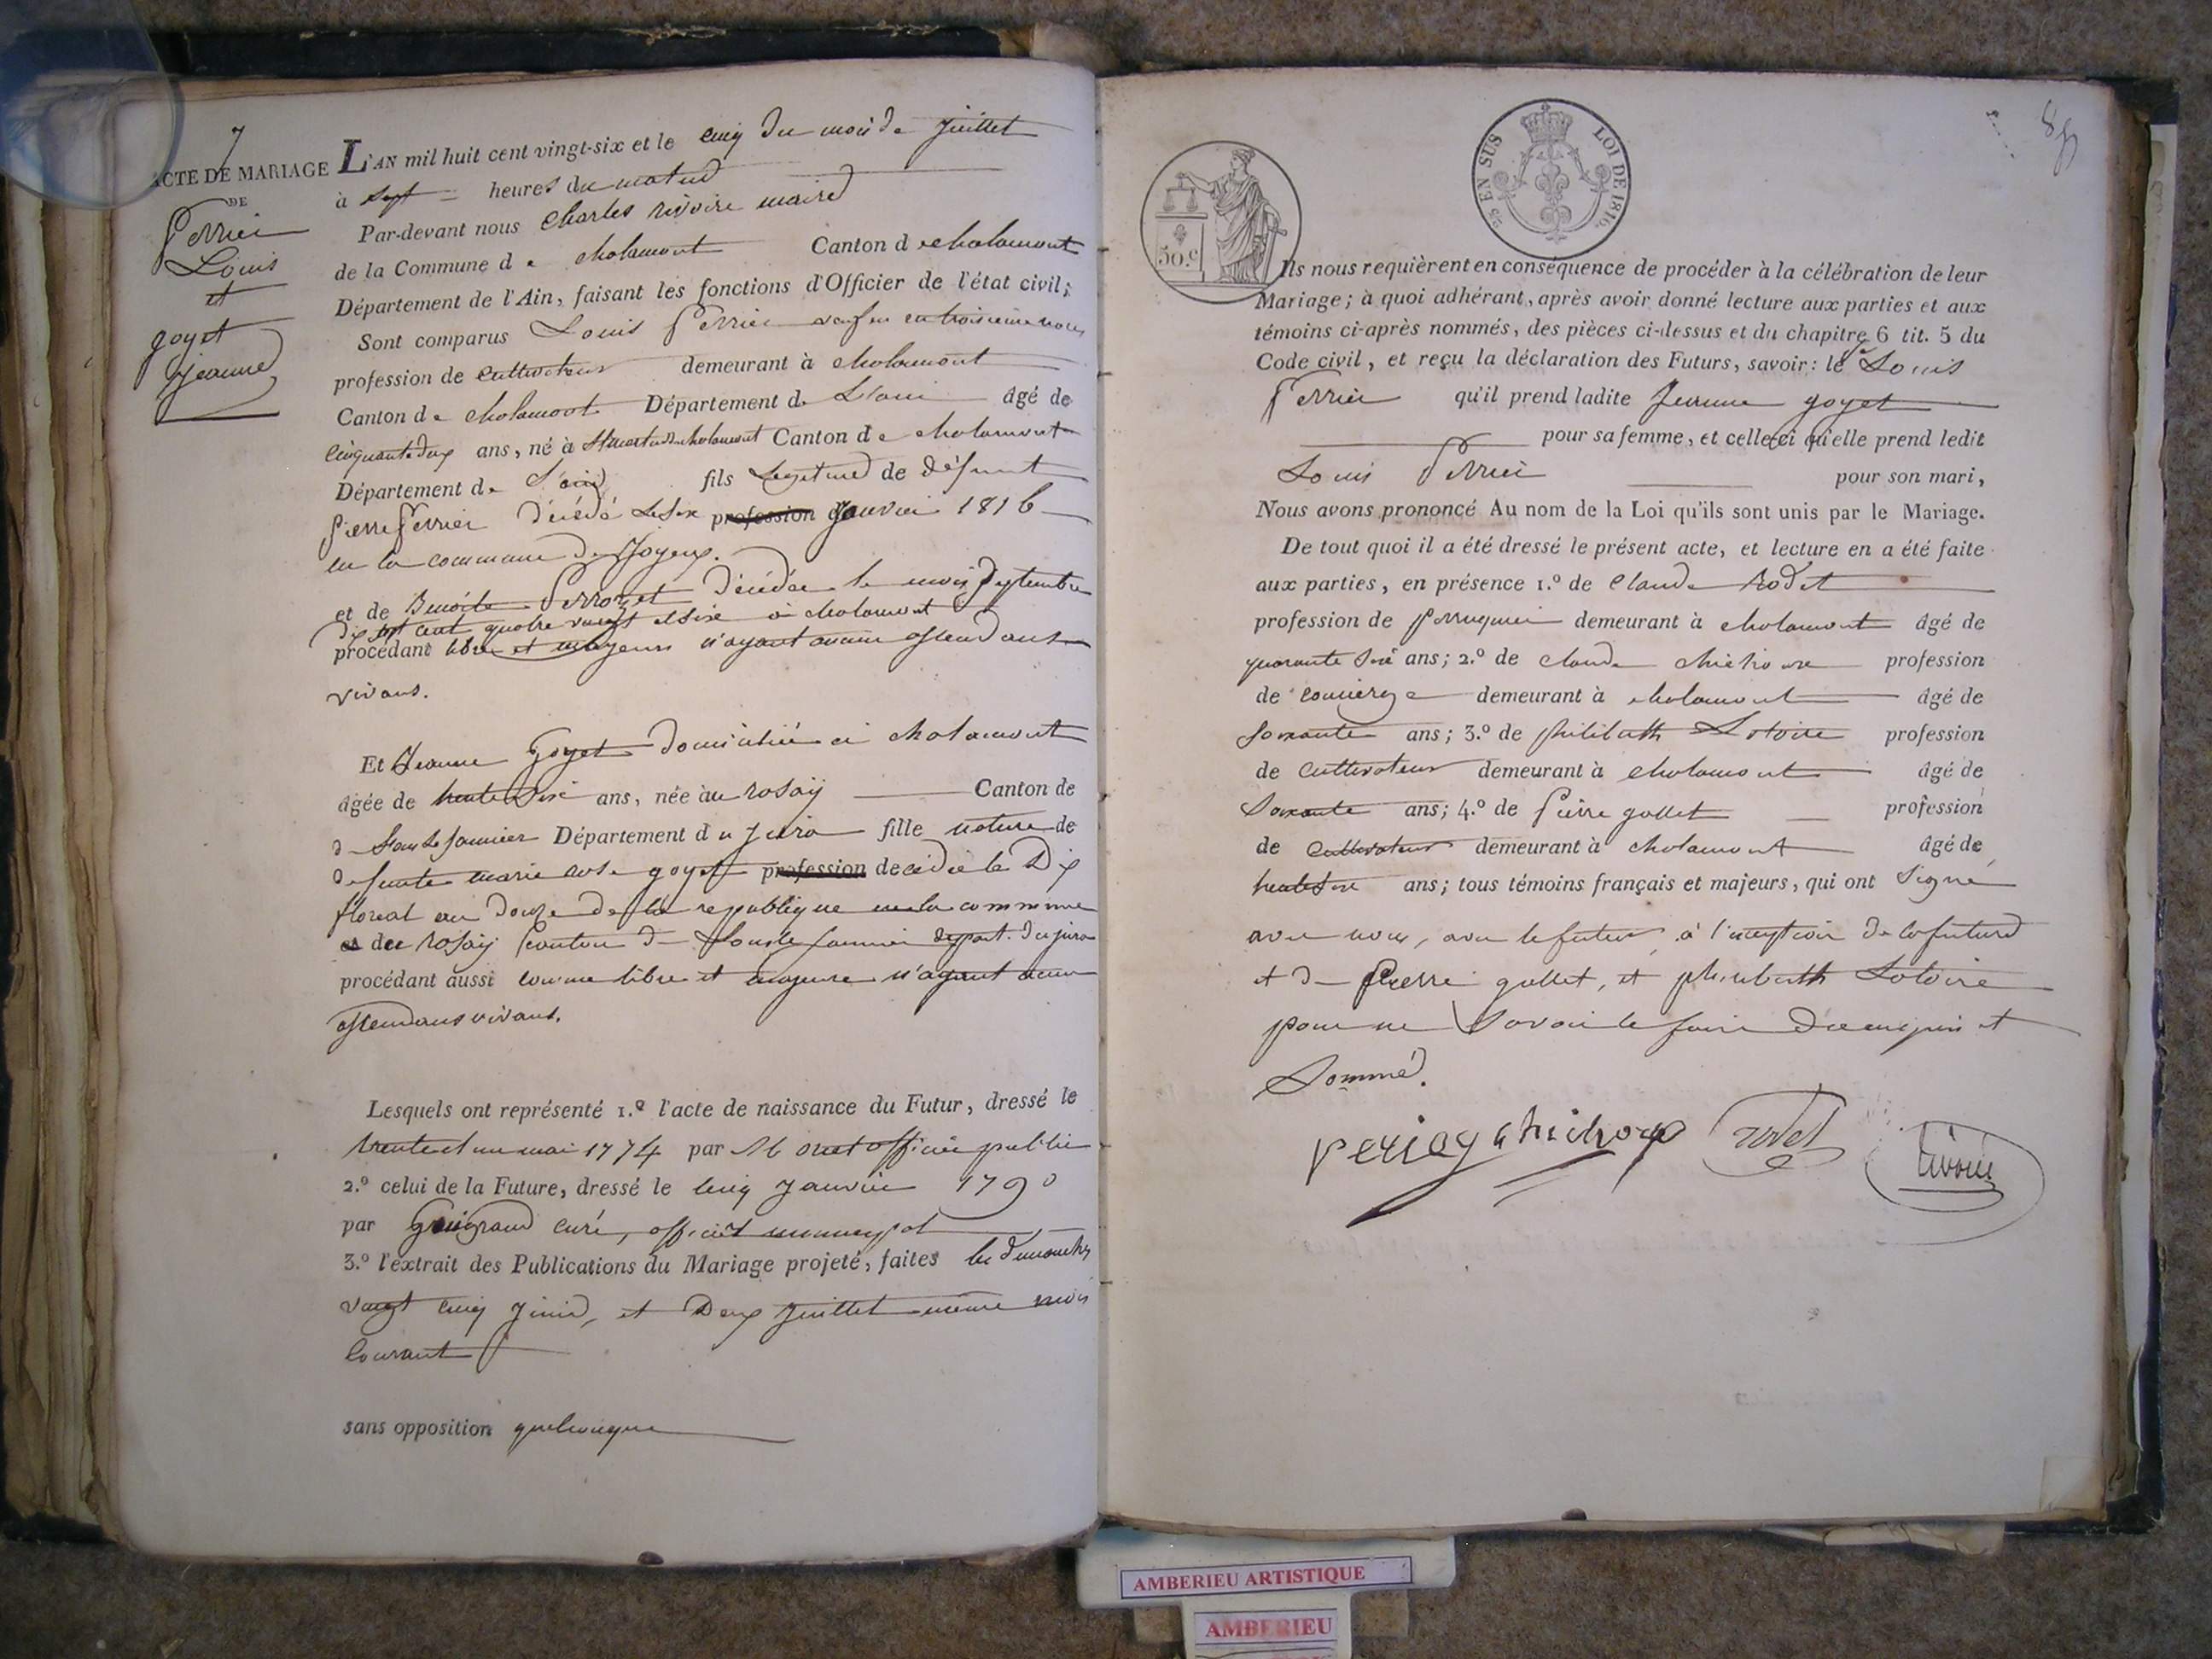 7
ACTE DE MARIAGE
DE
Perrier
Louis
et
goyet
Jeanne
L'AN mil huit cent vingt-six et le cinq du mois de Juillet
à sept heures du matin
Par-devant nous Charles rivoire maire
de la Commune de chalamont Canton de chalamont
Département de l'Ain, faisant les fonctions d'Officier de l'état civil;
Sont comparus Louis Perrier veuf en troisieme noces
profession de cultivateur demeurant à chalamont
Canton de chalamont Département de L'ain âgé de
cinquante deux ans, né à St martin de chalamont Canton de chalamont
Département de L'ain fils Legitime de défunt
Pierre Perrier décédé le six profession Janvier 1816
en la commune de Joyeux.
et de Benoite Perrozet décédée le mois de septembre
dix sept cent quatre vingt et six à chalamont
procédant libre et majeur n'ayant aucun assendant
vivans.
Et Jeanne Goyet domiciliée à chalamont
âgée de trente six ans, née au rosay Canton de
de Lons Le Saunier Département du Jura fille naturelle de
defunte marie rose goyet profession decedée le Dix
floreal an Douze de la republique en la commune
du rosay Canton de Lons le Saunier depart. du jura
procédant aussi comme libre et majeure n'ayant aucun
assendans vivans.
Lesquels ont représenté 1.º l'acte de naissance du Futur, dressé le
trente et un mai 1774 par officier public
2.º celui de la Future, dressé le cinq Janvier 1790
par curé, officier municipal
3.º l'extrait des Publications du Mariage projeté, faites les dimanches
vingt cinq Juin, et Deux Juillet même mois
Courant
sans opposition quelconque
25 EN SUS
LOI DE 1816
50.c
Ils nous requièrent en conséquence de procéder à la célébration de leur
Mariage; à quoi adhérant, après avoir donné lecture aux parties et aux
témoins ci-après nommés, des pièces ci-dessus et du chapitre 6 tit. 5 du
Code civil, et reçu la déclaration des Futurs, savoir: le Louis
Perrier qu'il prend ladite Jeanne goyet
pour sa femme, et celle-ci qu'elle prend ledit
Louis Perrier pour son mari,
Nous avons prononcé Au nom de la Loi qu'ils sont unis par le Mariage.
De tout quoi il a été dressé le présent acte, et lecture en a été faite
aux parties, en présence 1.º de Claude Rodet
profession de perruquier demeurant à chalamont âgé de
quarante six ans; 2.º de claude profession
de concierge demeurant à chalamont âgé de
soixante ans; 3.º de philibert Lotoire profession
de cultivateur demeurant à chalamont âgé de
soixante ans; 4.º de Pierre gallet profession
de cultivateur demeurant à chalamont âgé de
trente six ans; tous témoins français et majeurs, qui ont Signé
avec nous, avec le futur, à l'exception de la future
et de Pierre gallet, et philiberth Lotoire
pour ne Savoir le faire de ce enquis et
Sommé.
rodet
rivoire
AMBERIEU ARTISTIQUE
AMBERIEU